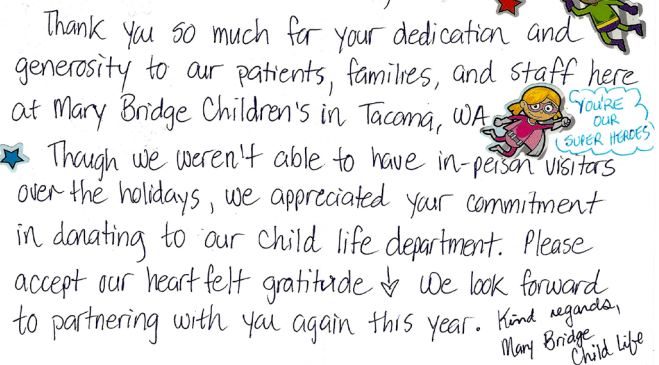 Thank you so much for your dedication and
generosity to our patients, families, and staff here
at Mary Bridge Children's in Tacoma, WA
YOU'RE
OUR
SUPER HEROES
Though we weren't able to have in-person visitors
over the holidays, we appreciated your commitment
in donating to our child life department. Please
accept our heartfelt gratitude ↓ We look forward
to partnering with you again this year.
Kind regards,
Mary Bridge
Child Life